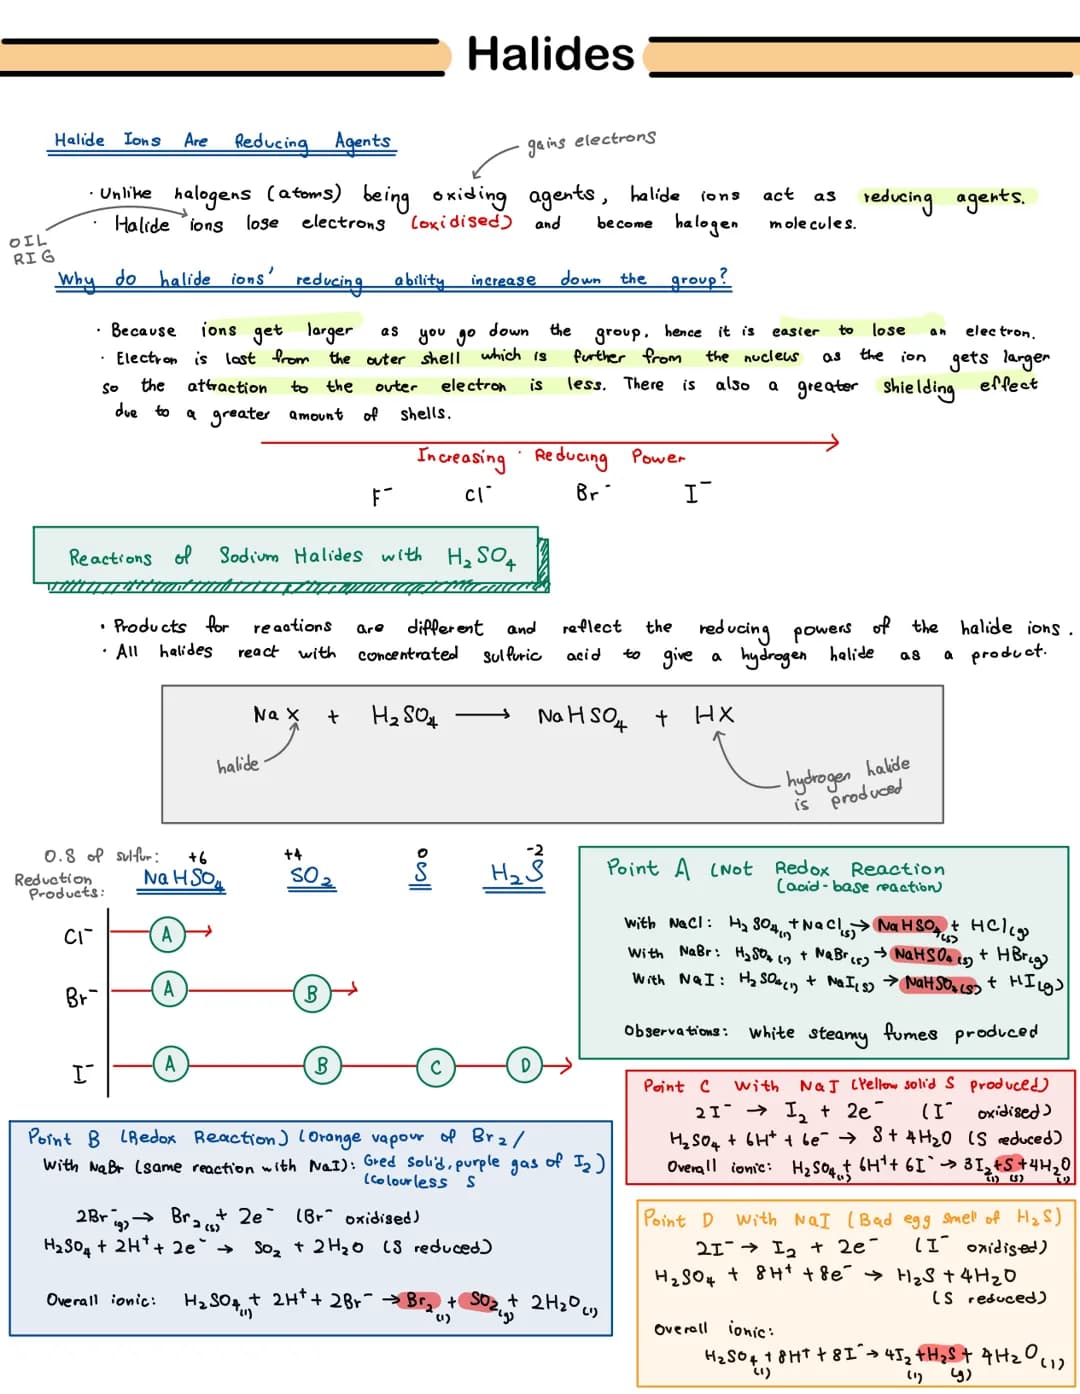 Halides
Halide Ions Are Reducing Agents
gains electrons
· Unlike halogens (atoms) being oxiding agents, halide ions act as reducing agents.
· Halide ions lose electrons (oxidised) and become halogen molecules.
OIL
RIG
Why do halide ions' reducing ability increase down the group?
· Because ions get larger as you go down the group, hence it is easier to lose an electron.
· Electron is lost from the outer shell which is further from the nucleus as the ion gets larger
so the attraction to the outer electron is less. There is also a greater shielding effect
due to a greater amount of shells.
Increasing Reducing Power
F⁻ Cl⁻ Br⁻ I⁻
Reactions of Sodium Halides with H₂SO₄
· Products for reactions are different and reflect the reducing powers of the halide ions.
· All halides react with concentrated sulfuric acid to give a hydrogen halide as a product.
NaX + H₂SO₄ → NaHSO₄ + HX
halide
hydrogen halide
is produced
O.S of sulfur: +6 +4 0 -2
Reduction Products: NaHSO₄ SO₂ S H₂S
Cl⁻ A
Br⁻ A B
I⁻ A B C D
Point A (Not Redox Reaction
(acid-base reaction)
With NaCl: H₂SO₄(l) + NaCl(s) → NaHSO₄(s) + HCl(g)
With NaBr: H₂SO₄(l) + NaBr(s) → NaHSO₄(s) + HBr(g)
With NaI: H₂SO₄(l) + NaI(s) → NaHSO₄(s) + HI(g)
Observations: White steamy fumes produced
Point B (Redox Reaction) (Orange vapour of Br₂/
With NaBr (same reaction with NaI): Gred solid, purple gas of I₂)
(Colourless S
2Br⁻(g) → Br₂(s) + 2e⁻ (Br⁻ oxidised)
H₂SO₄ + 2H⁺ + 2e⁻ → SO₂ + 2H₂O (S reduced)
Overall ionic: H₂SO₄(l) + 2H⁺ + 2Br⁻ → Br₂(l) + SO₂(g) + 2H₂O(l)
Point C With NaI (Yellow solid S produced)
2I⁻ → I₂ + 2e⁻ (I⁻ oxidised)
H₂SO₄ + 6H⁺ + 6e⁻ → S + 4H₂O (S reduced)
Overall ionic: H₂SO₄(l) + 6H⁺ + 6I⁻ → 3I₂(l) + S(s) + 4H₂O(l)
Point D With NaI (Bad egg smell of H₂S)
2I⁻ → I₂ + 2e⁻ (I⁻ oxidised)
H₂SO₄ + 8H⁺ + 8e⁻ → H₂S + 4H₂O
(S reduced)
Overall ionic:
H₂SO₄(l) + 8H⁺ + 8I⁻ → 4I₂(l) + H₂S(g) + 4H₂O(l)